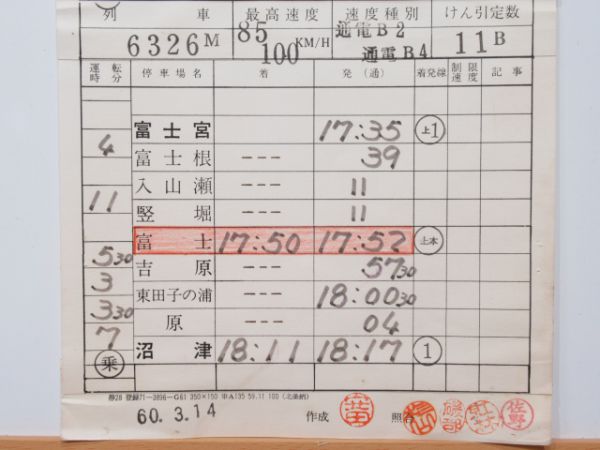 列車 最高速度 速度種別 けん引定数
6326M 85 100 KM/H 通電B2 通電B4 11B
運転時分 停車場名 着 発(通) 着発線 制限速度 記事
富士宮 17:35 上1
4 富士根 --- 39
入山瀬 --- 11
11 竪堀 --- 11
富士 17:50 17:52 上本
5 30 吉原 --- 57 30
3 東田子の浦 --- 18:00 30
3 30 原 --- 04
7 沼津 18:11 18:17 1
乗
60.3.14 作成 照合 磯部 佐野